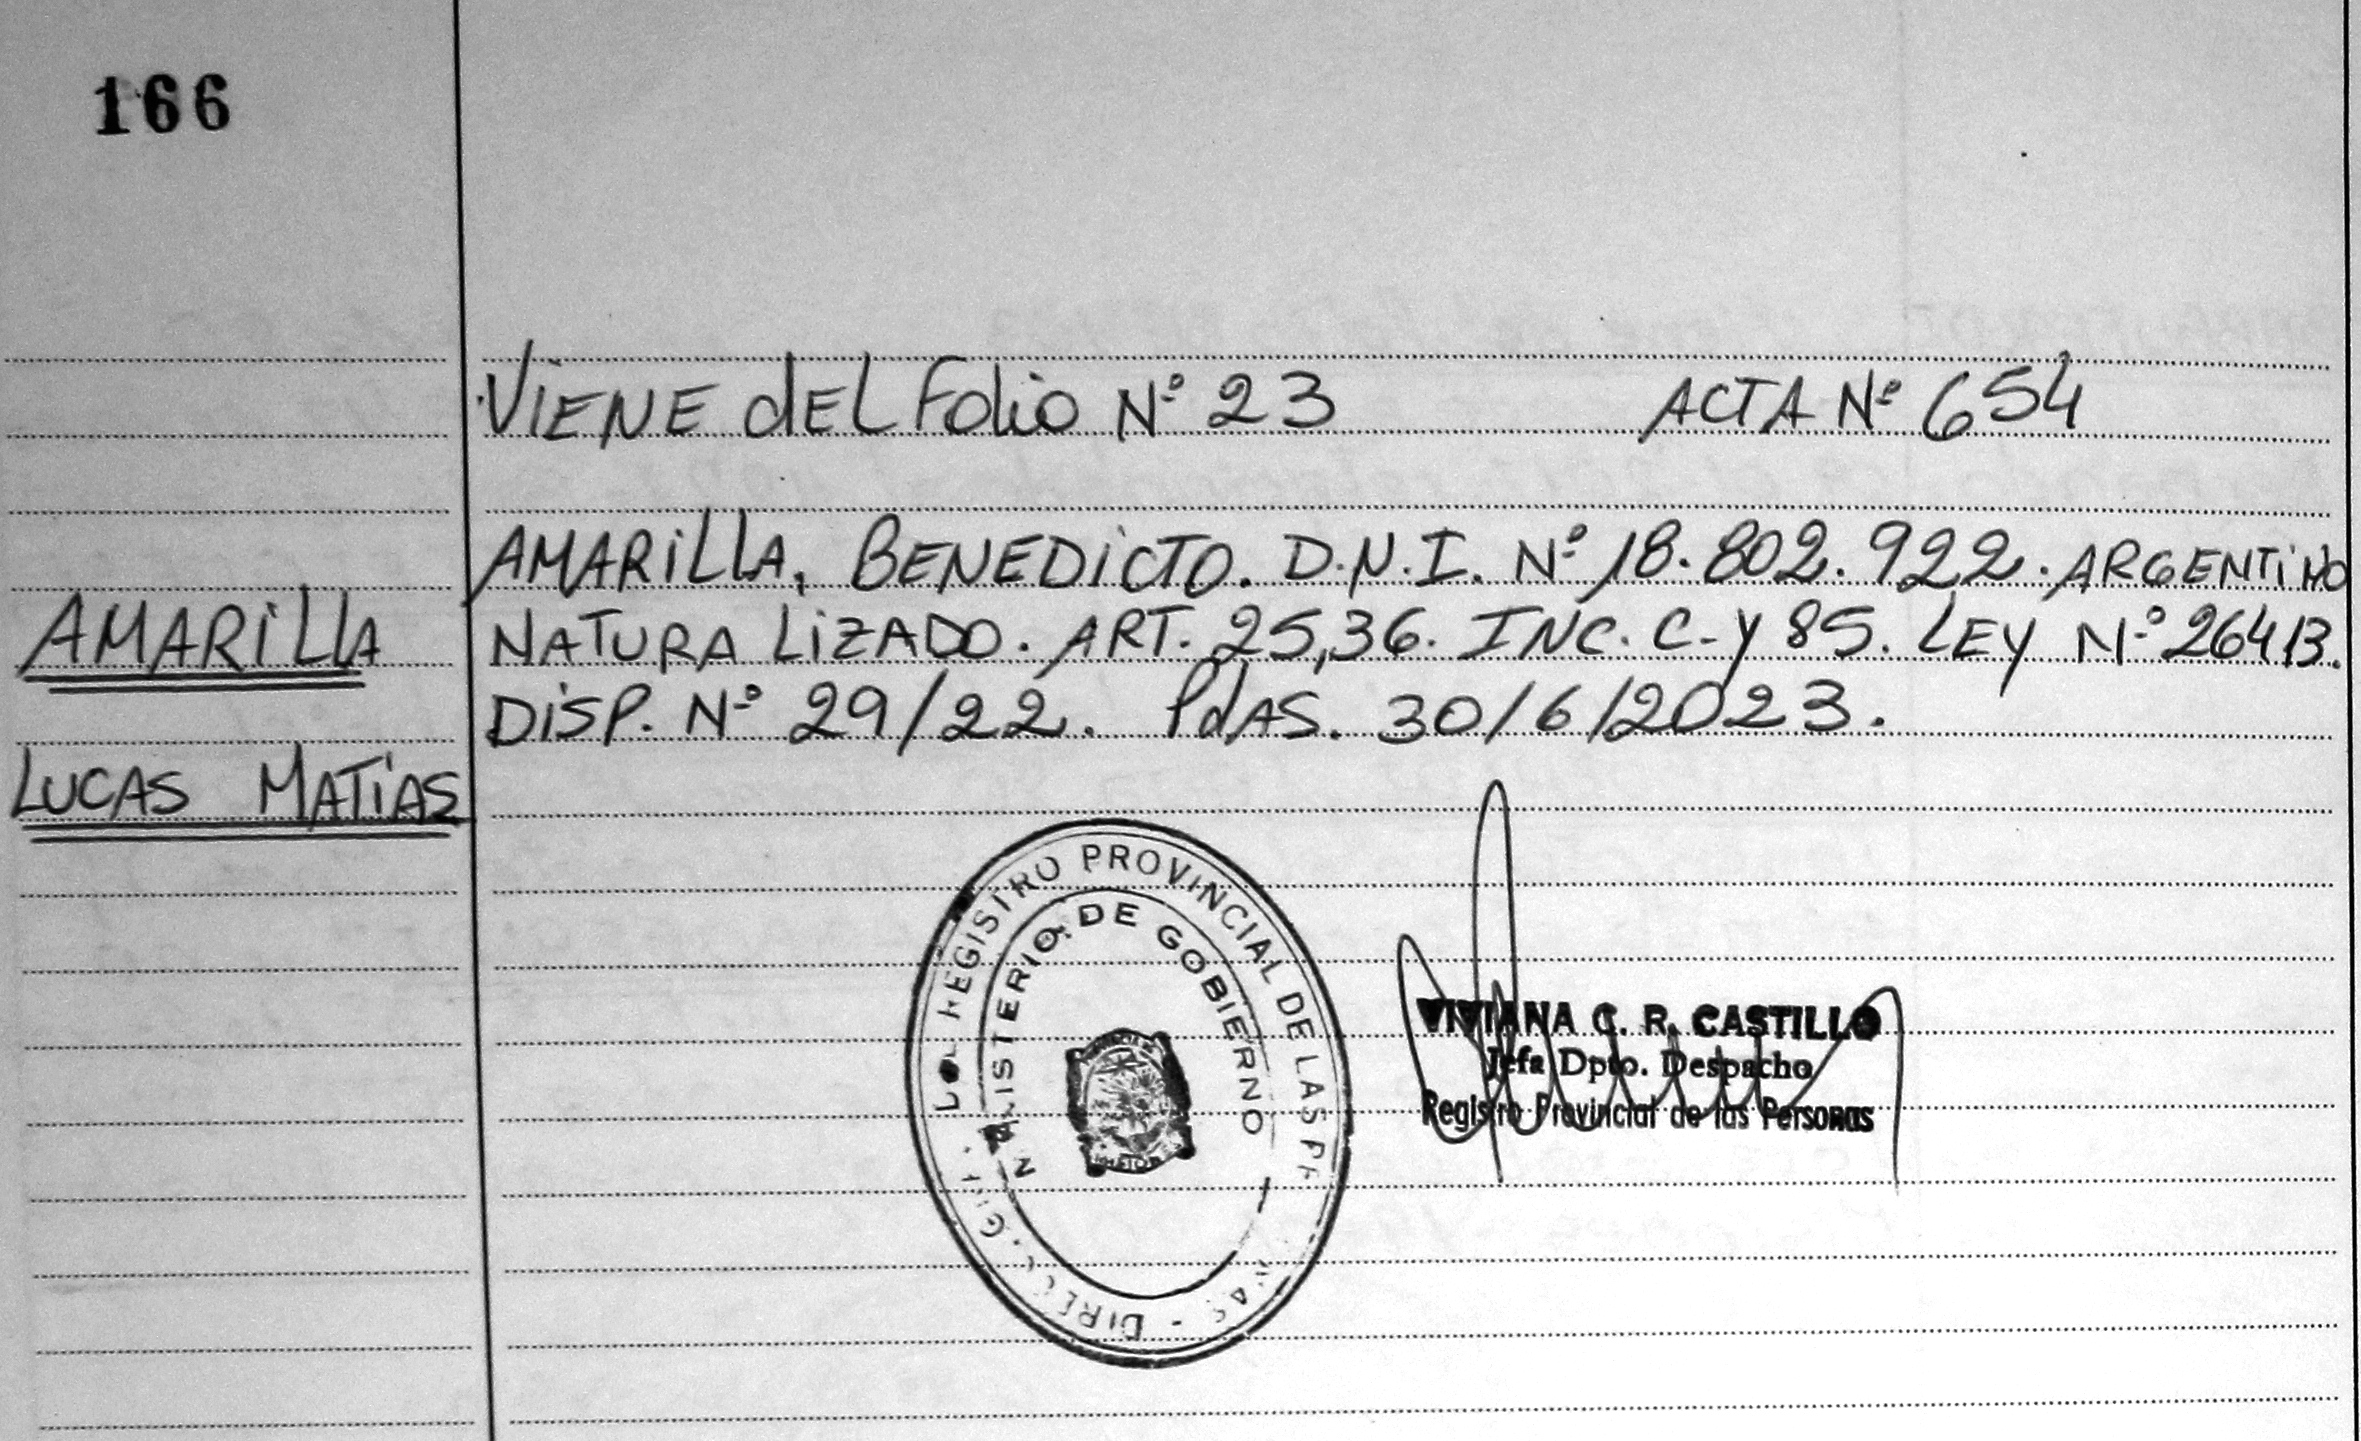 166
VIENE dEL Folio Nº 23 ACTA Nº 654
AMARILLA, BENEDICTO. D.N.I. Nº 18.802.922. ARGENTINO
NATURALIZADO. ART. 25,36. INC. C-Y 85. LEY Nº 26413.
DISP. Nº 29/22. PdAS. 30/6/2023.
AMARILLA
LUCAS MATÍAS
REGISTRO PROVINCIAL DE LAS
DE GOBIERNO
VIVIANA C. R. CASTILLO
Jefa Dpto. Despacho
Registro Provincial de las Personas